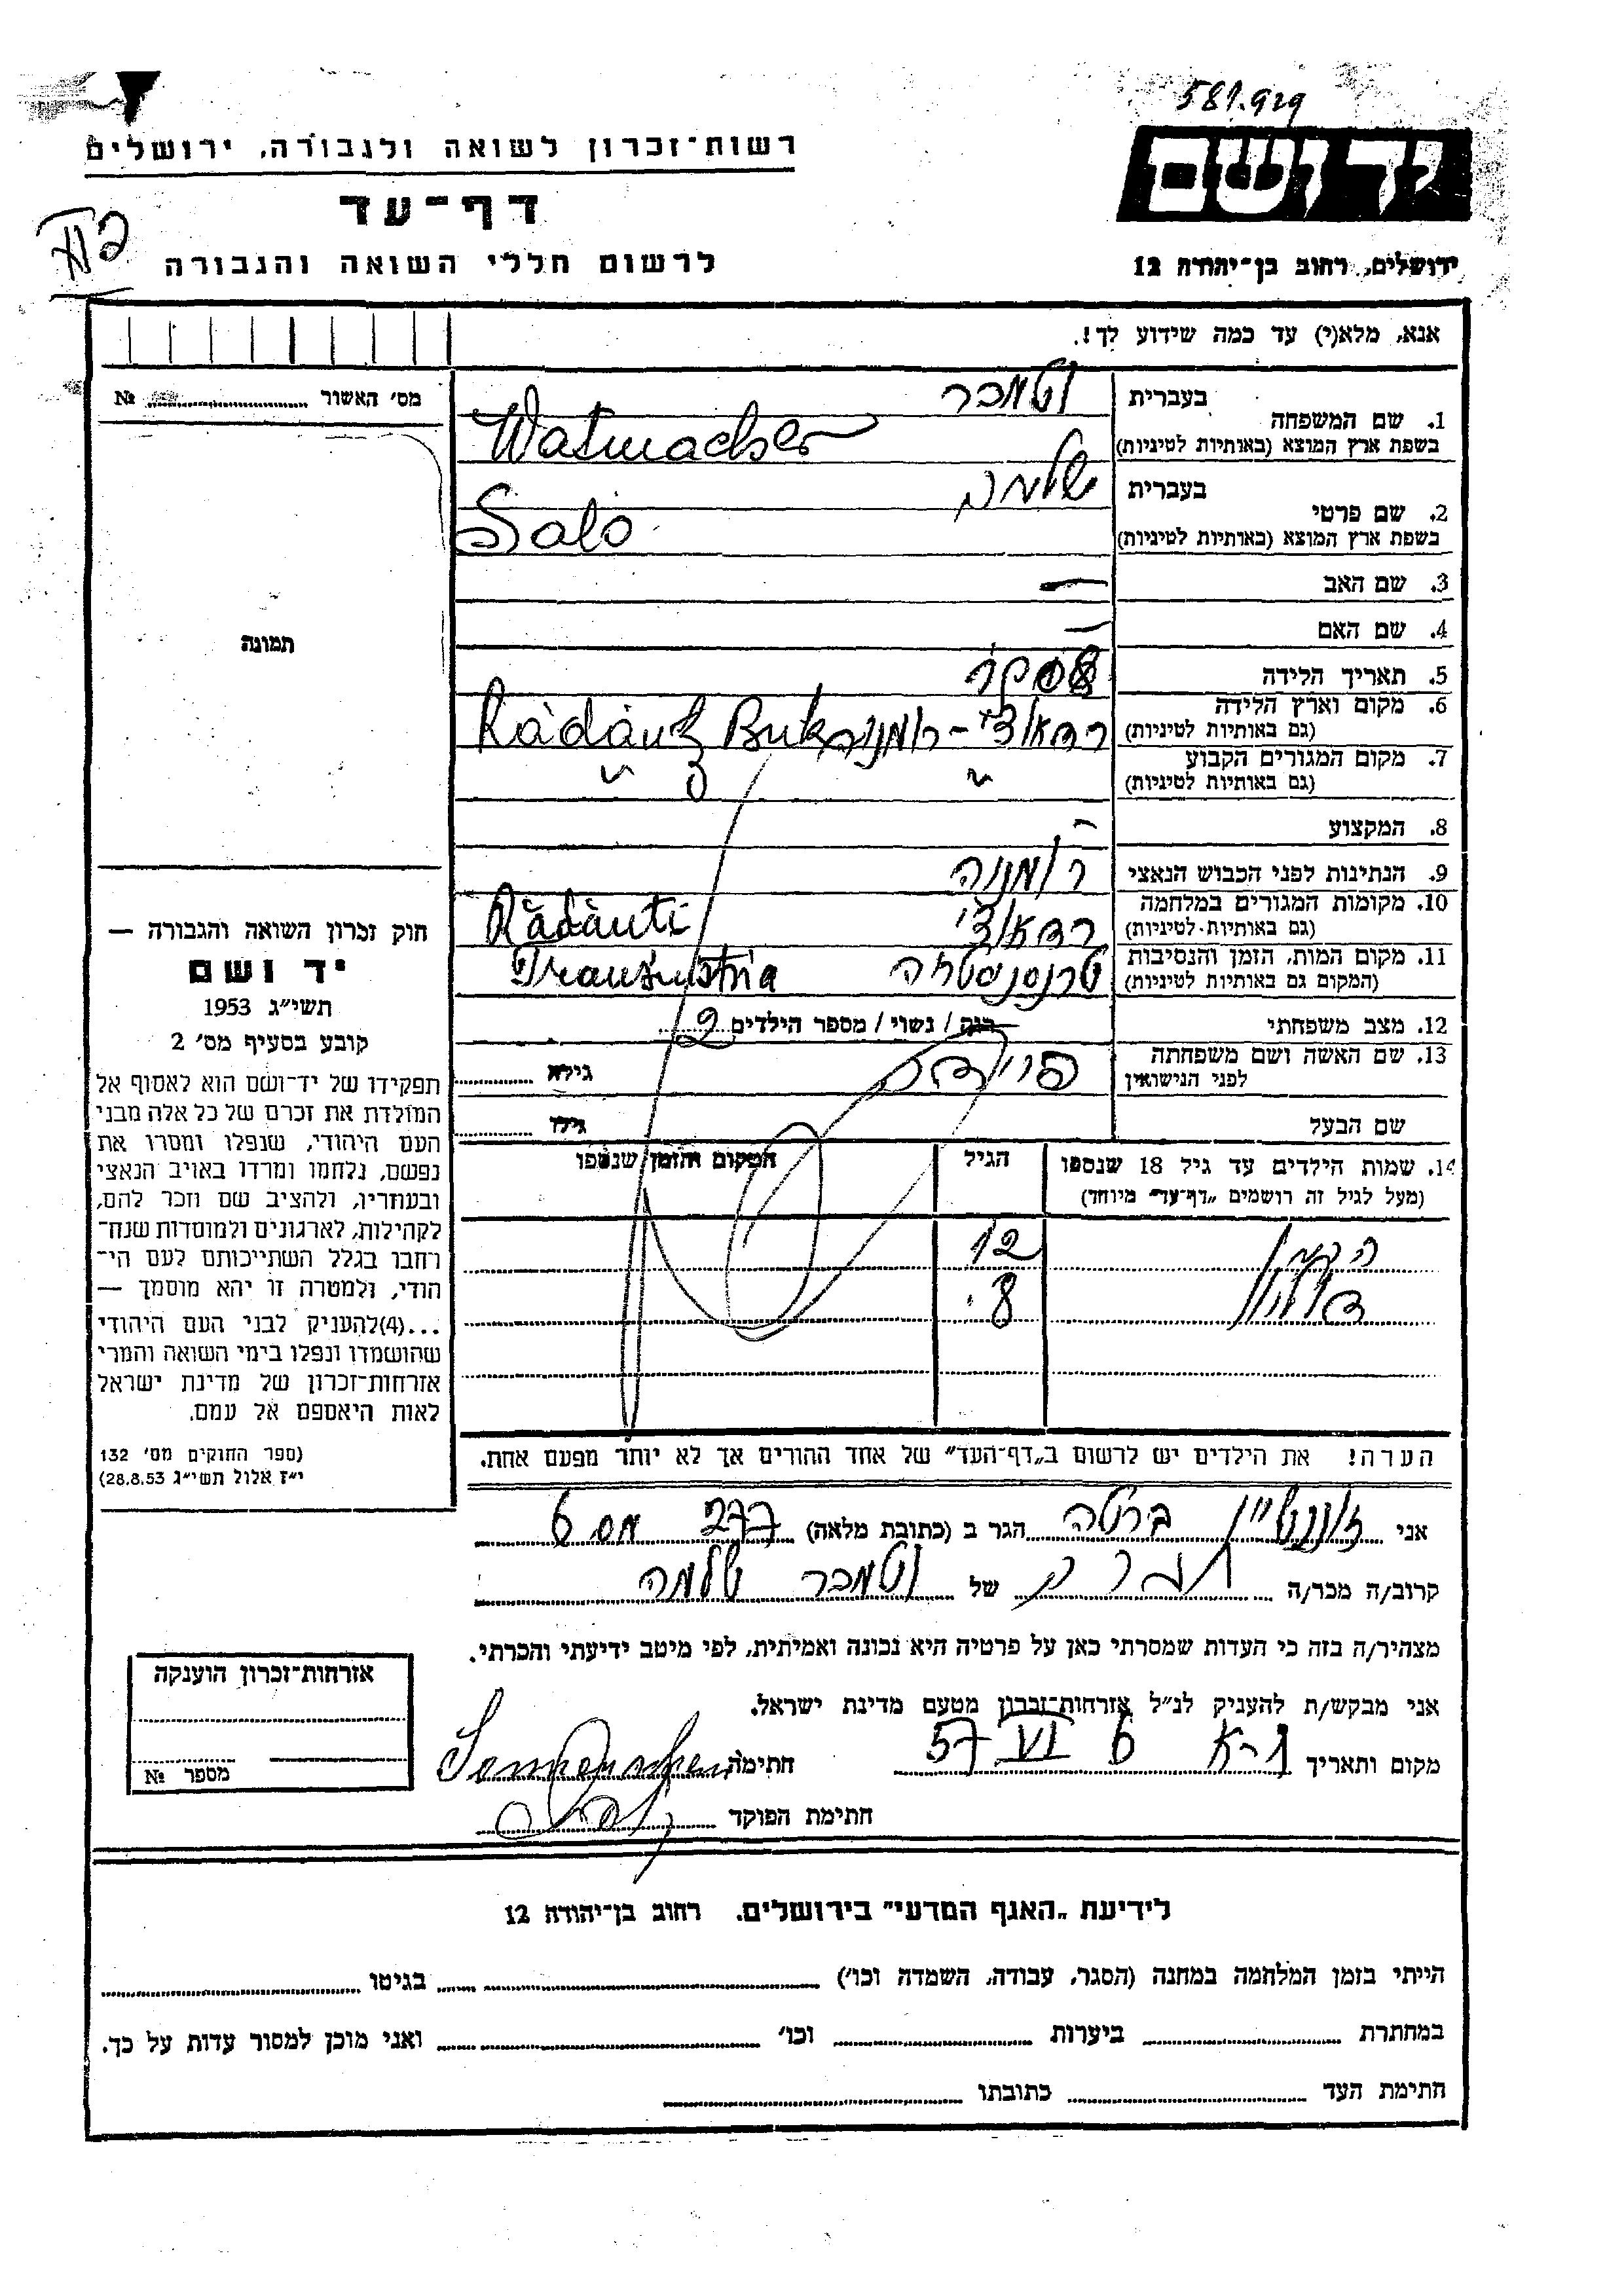 581.929
רשות־זכרון לשואה ולגבורה, ירושלים
יד ושם
דף־עד
לרשום חללי השואה והגבורה
ירושלים, רחוב בן־יהודה 12
אנא, מלא(י) עד כמה שידוע לך!
מס׳ האשור № 
1. שם המשפחה בעברית וטמכר
בשפת ארץ המוצא (באותיות לטיניות) Watmacher
2. שם פרטי בעברית שלמה
בשפת ארץ המוצא (באותיות לטיניות) Salo
3. שם האב —
4. שם האם —
תמונה
5. תאריך הלידה
6. מקום וארץ הלידה
(גם באותיות לטיניות) רדאוצי - רומניה
7. מקום המגורים הקבוע
(גם באותיות לטיניות) "
8. המקצוע —
9. הנתינות לפני הכבוש הנאצי רומניה
10. מקומות המגורים במלחמה
(גם באותיות לטיניות) רדאוצי Rădăuti
11. מקום המות, הזמן והנסיבות
(המקום גם באותיות לטיניות) טרנסניסטריה
12. מצב משפחתי רוק / נשוי / מספר הילדים 2
13. שם האשה ושם משפחתה
לפני הנישואין גילא
שם הבעל גילו
14. שמות הילדים עד גיל 18 שנספו הגיל המקום והזמן שנספו
(מעל לגיל זה רושמים „דף־עד״ מיוחד)
12
8
הערה! את הילדים יש לרשום ב„דף־העד״ של אחד ההורים אך לא יותר מפעם אחת.
חוק זכרון השואה והגבורה —
יד ושם
תשי״ג 1953
קובע בסעיף מס׳ 2
תפקידו של יד־ושם הוא לאסוף אל
המולדת את זכרם של כל אלה מבני
העם היהודי, שנפלו ומסרו את
נפשם, נלחמו ומרדו באויב הנאצי
ובעוזריו, ולהציב שם וזכר להם,
לקהילות, לארגונים ולמוסדות שנח־
רחבו בגלל השתייכותם לעם הי־
הודי, ולמטרה זו יהא מוסמך —
...(4) להעניק לבני העם היהודי
שהושמדו ונפלו בימי השואה והמרי
אזרחות־זכרון של מדינת ישראל
לאות היאספם אל עמם.
(ספר החוקים מס׳ 132
י״ז אלול תשי״ג 28.8.53)
אני זוננשיין ברטה הגר ב (כתובת מלאה) 277 מס 6
קרוב/ה מכר/ה של וטמכר שלמה
מצהיר/ה בזה כי העדות שמסרתי כאן על פרטיה היא נכונה ואמיתית, לפי מיטב ידיעתי והכרתי.
אני מבקש/ת להעניק לנ״ל אזרחות־זכרון מטעם מדינת ישראל.
מקום ותאריך 6 VI 57 חתימה
חתימת הפוקד
אזרחות־זכרון הוענקה
מספר №
לידיעת „האגף המדעי״ בירושלים. רחוב בן־יהודה 12
הייתי בזמן המלחמה במחנה (הסגר, עבודה, השמדה וכו׳) בגיטו
במחתרת ביערות וכו׳ ואני מוכן למסור עדות על כך.
חתימת העד כתובתו